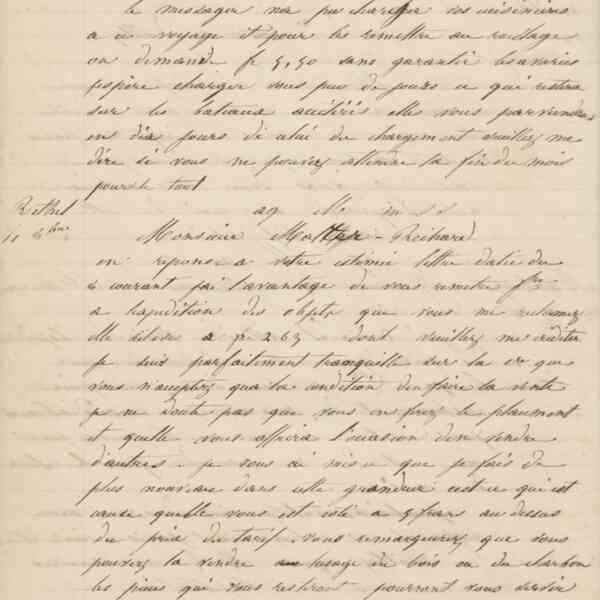 le messager n'a pu charger vos cuisinières
a ce voyage et pour les remettre au roulage
on demande f 5,50 sans garantir les avaries
j'espère charger sous peu de jours ce qui restera
sur les bateaux accélérés elles vous parviendra
en dix jours de celui du chargement veuillez me
dire si vous ne pouvez attendre la fin du mois
pour le tout
Rethel
ag M
Monsieur Reihard
en reponse a votre estimée lettre datée du
courant j'ai l'avantage de vous remettre fre
a l'expédition des objets que vous me reclamez
elle s'élève a fr 263 dont veuillez me créditer
je suis parfaitement tranquille sur la que
vous n'acceptez qu'a la condition d'en faire la vente
je ne doute pas que vous en ferez le placement
et qu'elle vous offrira l'occasion d'en vendre
d'autres. je vous ai mis ce que je fais de
plus nouveau dans cette grandeur c'est ce qui est
cause qu'elle vous est coté a 5 francs au dessus
du prix du tarif. vous remarquerez que vous
pouvez la vendre au usage du bois ou du charbon
les pieces qui vous resteront pourront vous servir